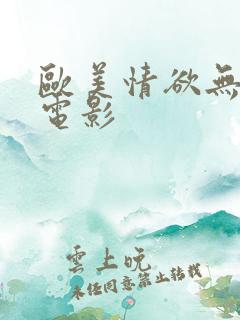 歐美情欲無
電影
雲上晚
未经同意禁止转载